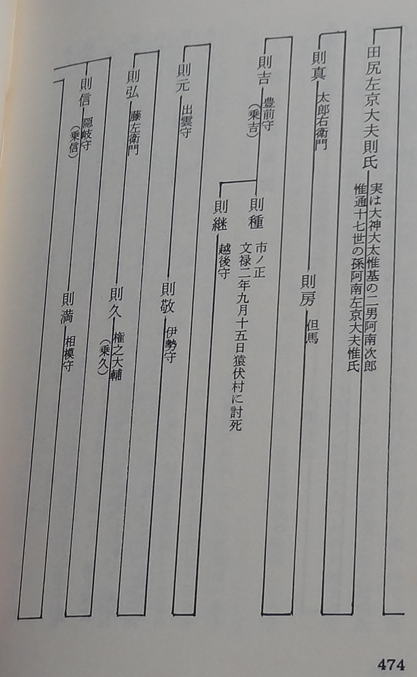 田尻左京大夫則氏
実は大神大太惟基の二男阿南次郎
惟通十七世の孫阿南左京大夫惟氏
則真 太郎右衛門
則房 但馬
則吉 豊前守
(乗吉)
則種 市ノ正
文禄二年九月十五日猿伏村に討死
則継 越後守
則元 出雲守
則敬 伊勢守
則弘 藤左衛門
則久 権之大輔
(乗久)
則信 隠岐守
(乗信)
則満 相模守
474